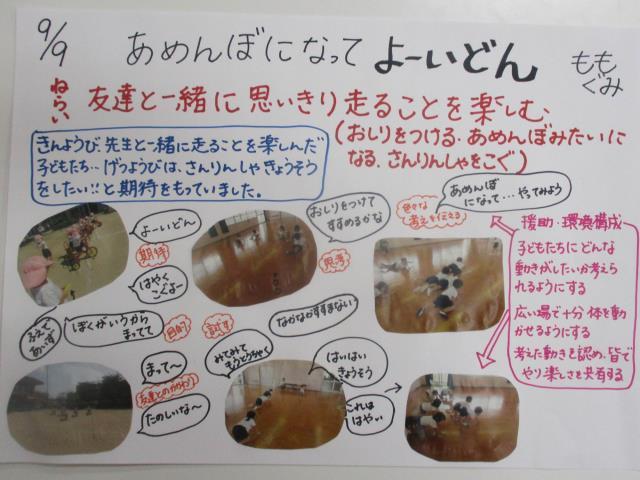 9/9
あめんぼになって よーいどん
ももぐみ
ねらい
友達と一緒に思いきり走ることを楽しむ、
(おしりをつける、あめんぼみたいに
なる、さんりんしゃをこぐ)
きんようび 先生と一緒に走ることを楽しんだ
子どもたち… げつようびは、さんりんしゃきょうそう
をしたい!! と期待をもっていました。
よーいどん
期待
はやく
こぐよー
おしりをつけて
すすめるかな
思考
色々な
考えを伝える
あめんぼ
になって… やってみよう
援助・環境構成
子どもたちにどんな
動きがしたいか考えら
れるようにする
広い場で十分体を動
かせるようにする
考えた動きを認め、皆で
やり楽しさを共有する
ふえで
あいず
ぼくがいうから
まってて
目的
試す
なかなかすすまない
まって〜
友達とのかかわり
たのしいな〜
みてみて
もうとうちゃく
はいはい
きょうそう
これは
はやい